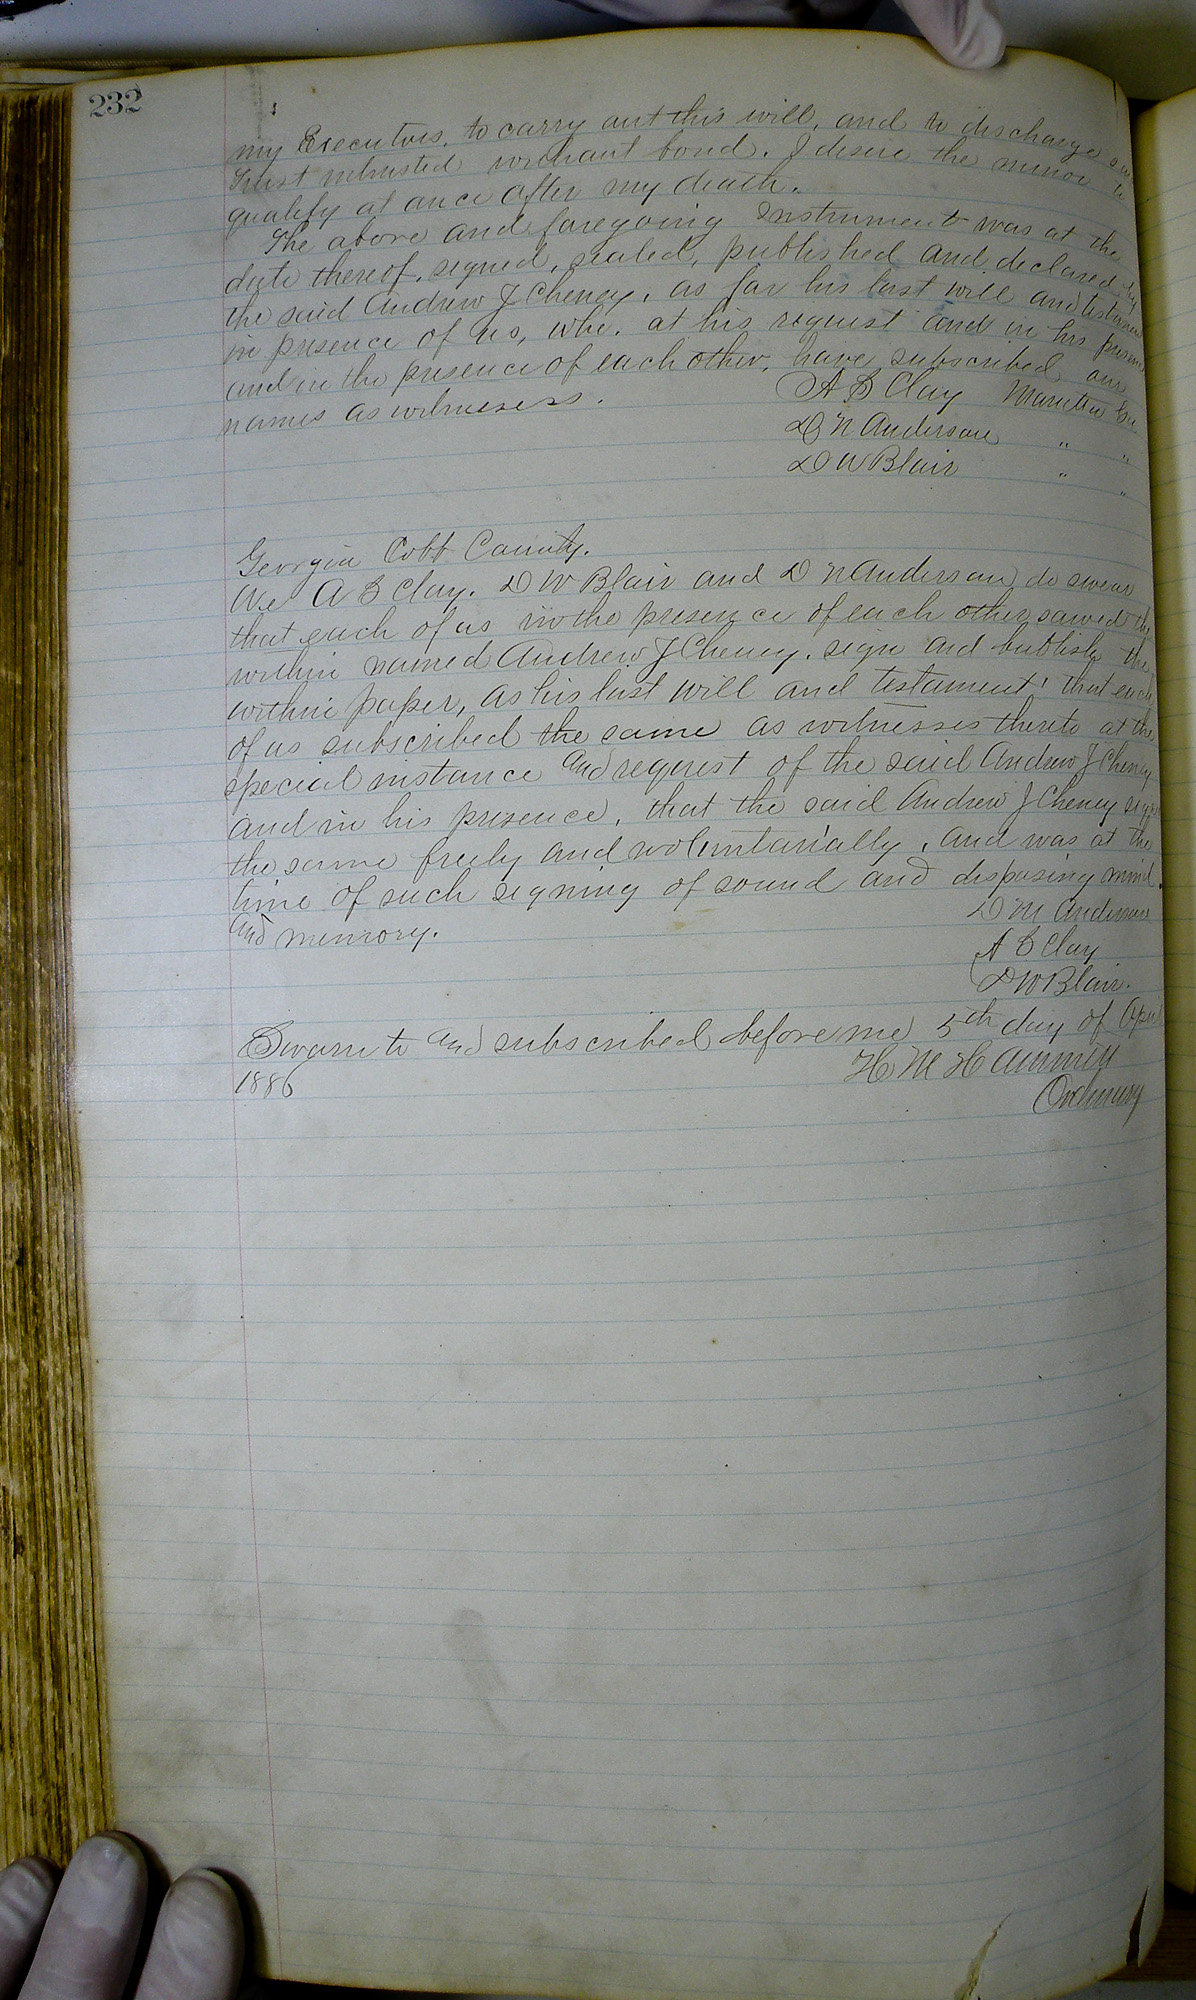 232
my Executors, to carry out this will, and to discharge
trust intrusted without bond. I desire the minor to
qualify at once after my death.
The above and foregoing Instrument was at the
date thereof, signed, sealed, published and declared by
the said Andrew J Cheney, as for his last will and testament
in presence of us, who, at his request and in his presence
and in the presence of each other, have subscribed our
names as witnesses.
A S Clay Marietta Ga
D N Anderson " "
D W Blair " "
Georgia Cobb County.
We A S Clay. D W Blair and D N Anderson do swear
that each of us in the presence of each other sawed the
within named Andrew J Cheney, sign and publish the
within paper, as his last will and testament, that each
of us subscribed the same as witnesses thereto at the
special instance and request of the said Andrew J Cheney
and in his presence, that the said Andrew J Cheney
the same freely and voluntarially, and was at the
time of such signing of sound and disposing mind
and memory.
D M Anderson
A S Clay
D W Blair.
Sworn to and subscribed before me 5th day of April
1886
H M Hammett
Ordinary